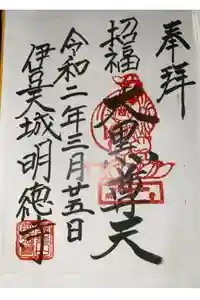 奉拝
招福
大黒尊天
令和二年三月廿五日
伊呂城明徳寺